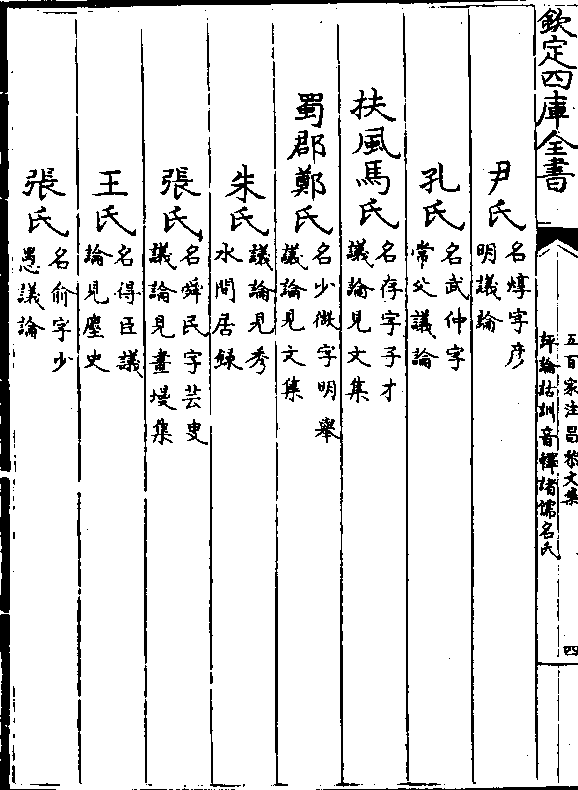 欽定四庫全書
五百家注昌黎文集
評論詁訓音釋諸儒名氏
四
尹氏名焞字彦明議論
孔氏名武仲字常父議論
扶風馬氏名存字子才議論見文集
蜀郡鄭氏名少微字明舉議論見文集
朱氏議論見秀水閒居錄
張氏名舜民字芸叟議論見畫墁集
王氏名得臣議論見麈史
張氏名俞字少愚議論